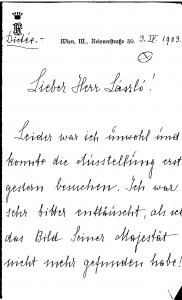 Wien, III., Reisnerstraße 50. 3. IV. 1903.
Lieber Herr László!
Leider war ich unwohl und
konnte die Ausstellung erst
gestern besuchen. Ich war
sehr bitter enttäuscht, als ich
das Bild Seiner Majestät
nicht mehr gefunden habe!